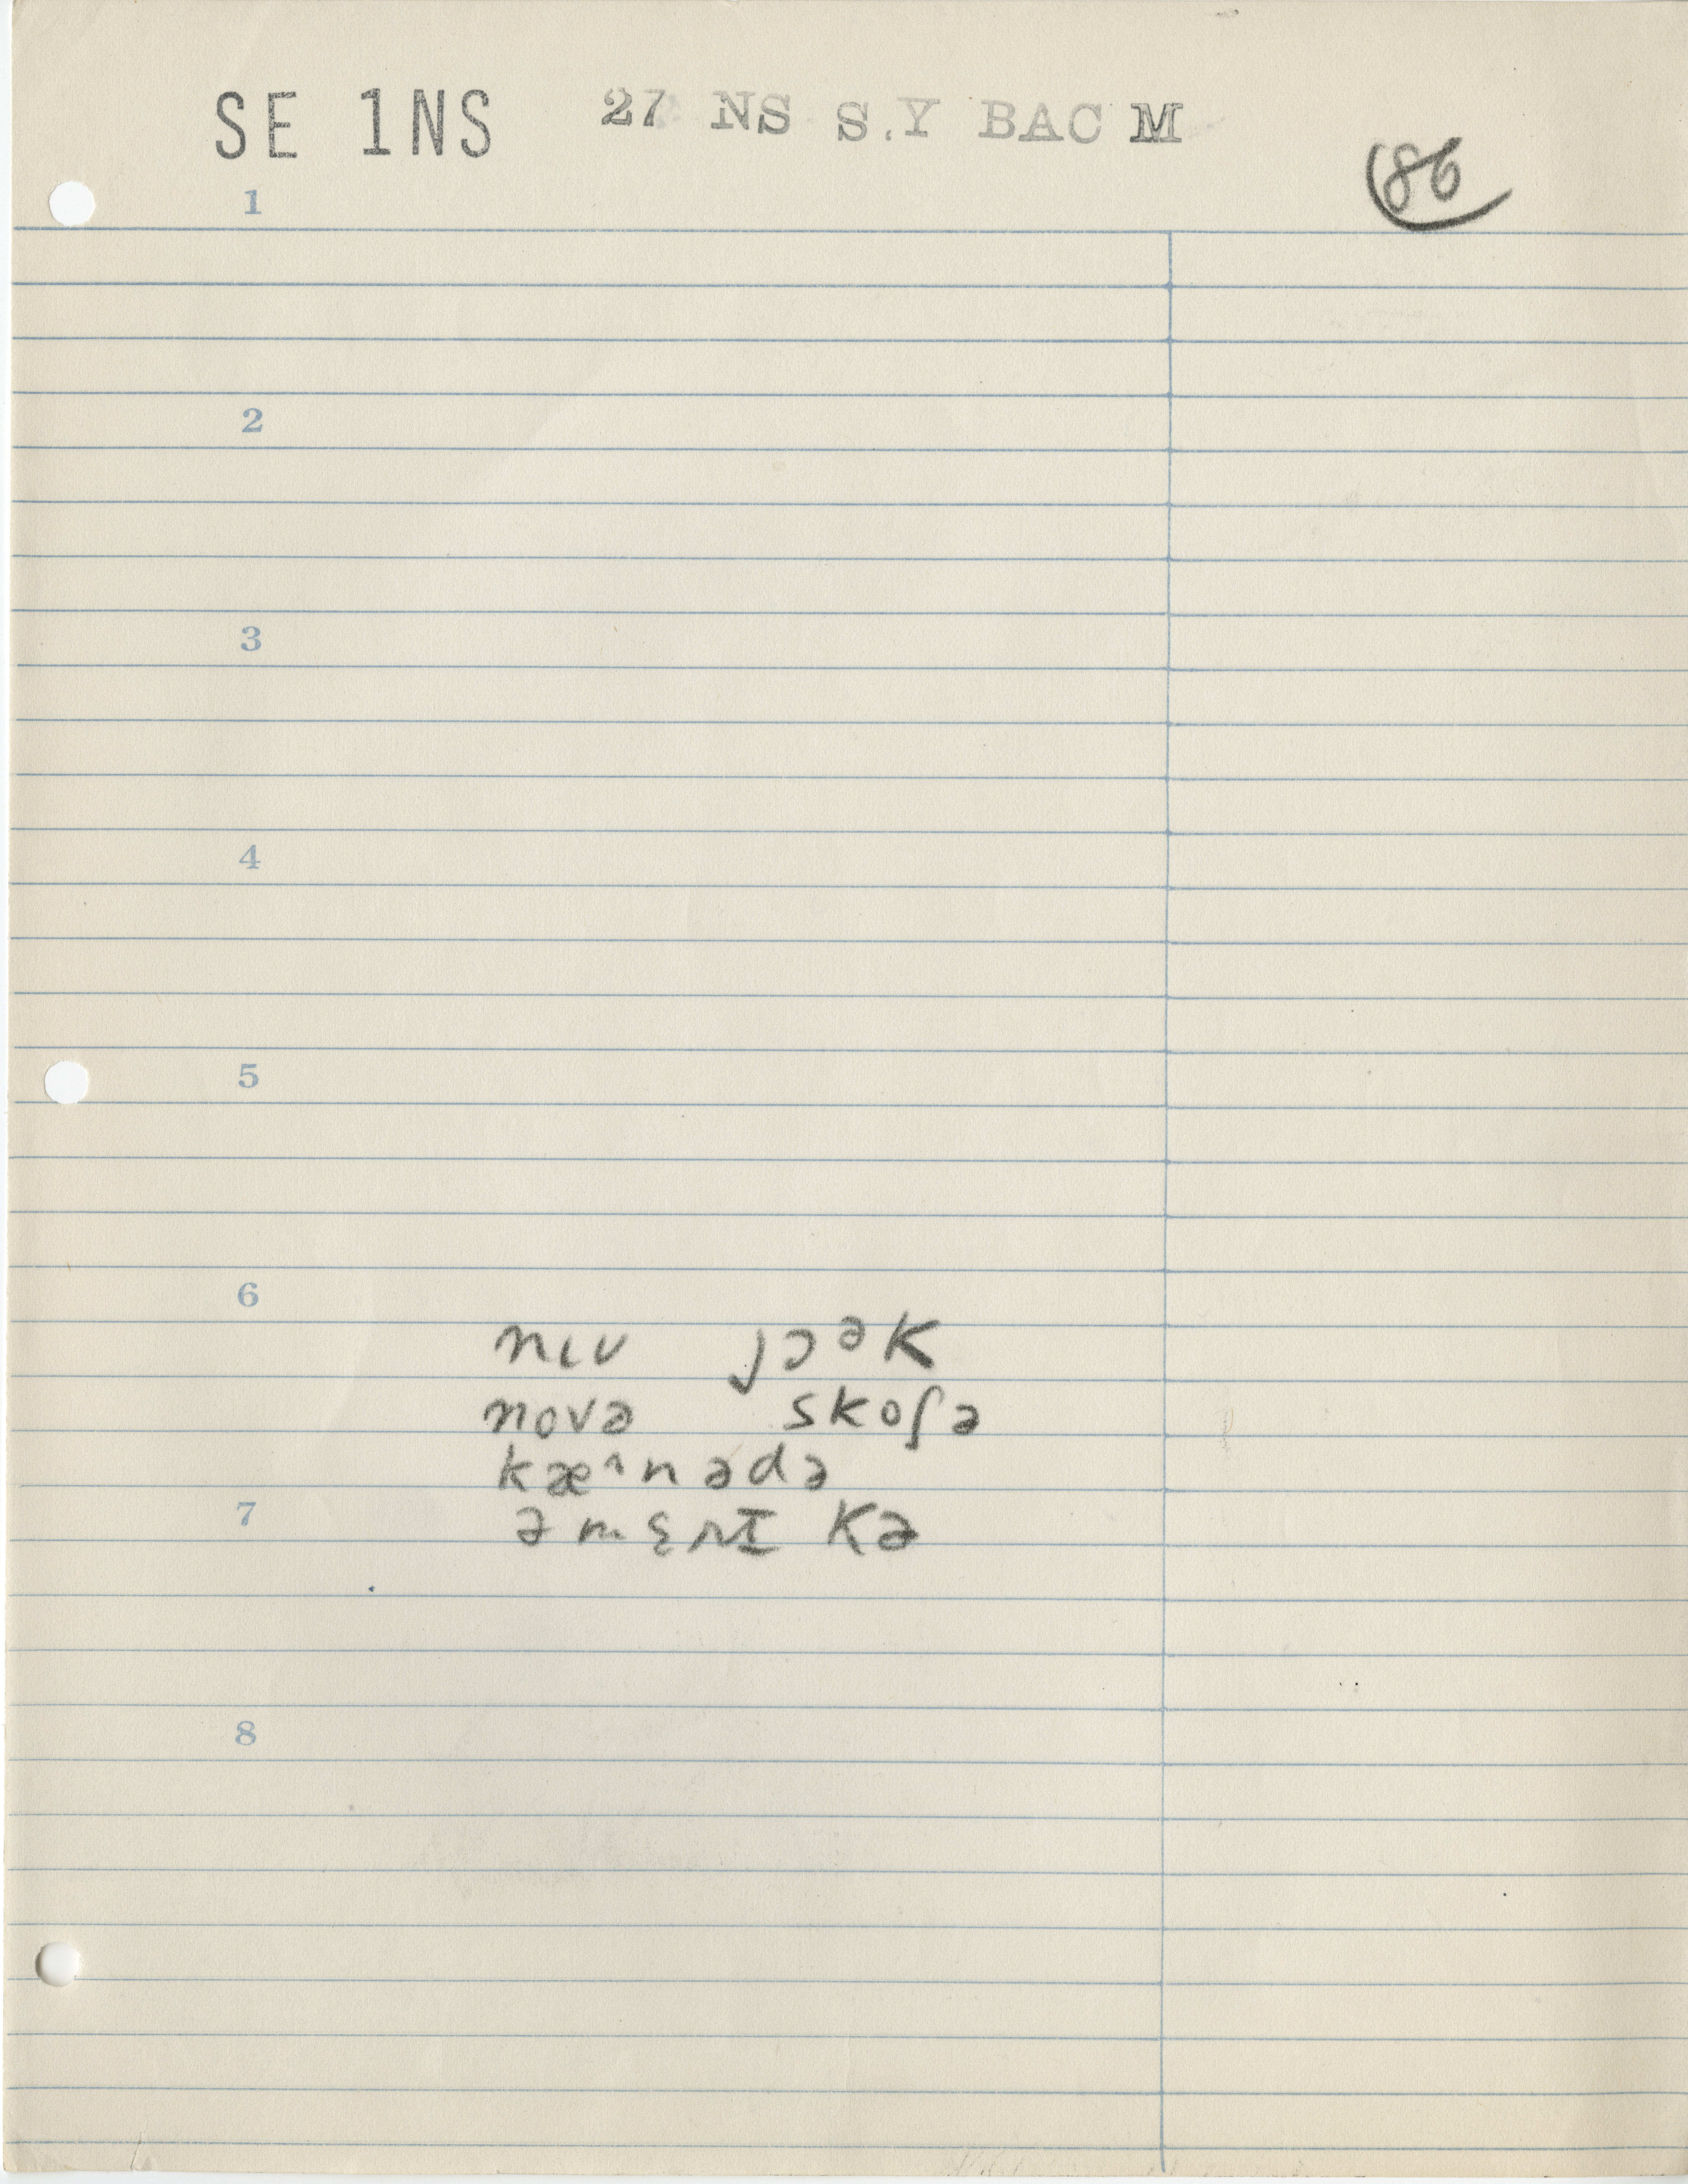 SE 1NS 27 NS S.Y BAC M
86
1
2
3
4
5
6
nɩʋ jɔᵊk
novə skoʃə
kæ^nədə
7
əmɛrɪkə
8